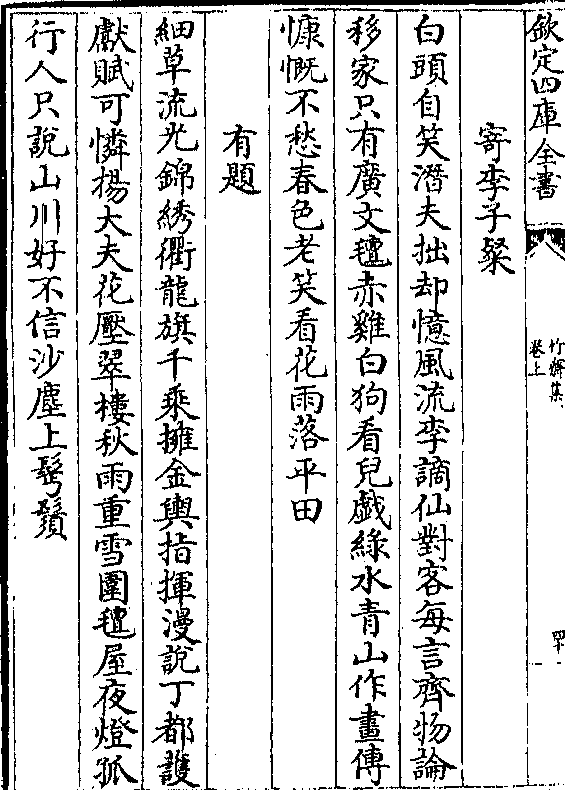 欽定四庫全書
竹齋集
卷上
寄李子粲
白頭自笑潛夫拙却憶風流李謫仙對客每言齊物論
移家只有廣文氊赤雞白狗看兒戯綠水青山作畫傳
慷慨不愁春色老笑看花雨落平田
有題
細草流光錦綉衢龍旗千乘擁金輿指揮漫說丁都護
獻賦可憐揚大夫花壓翠樓秋雨重雪圍氊屋夜燈孤
行人只說山川好不信沙塵上髩鬚